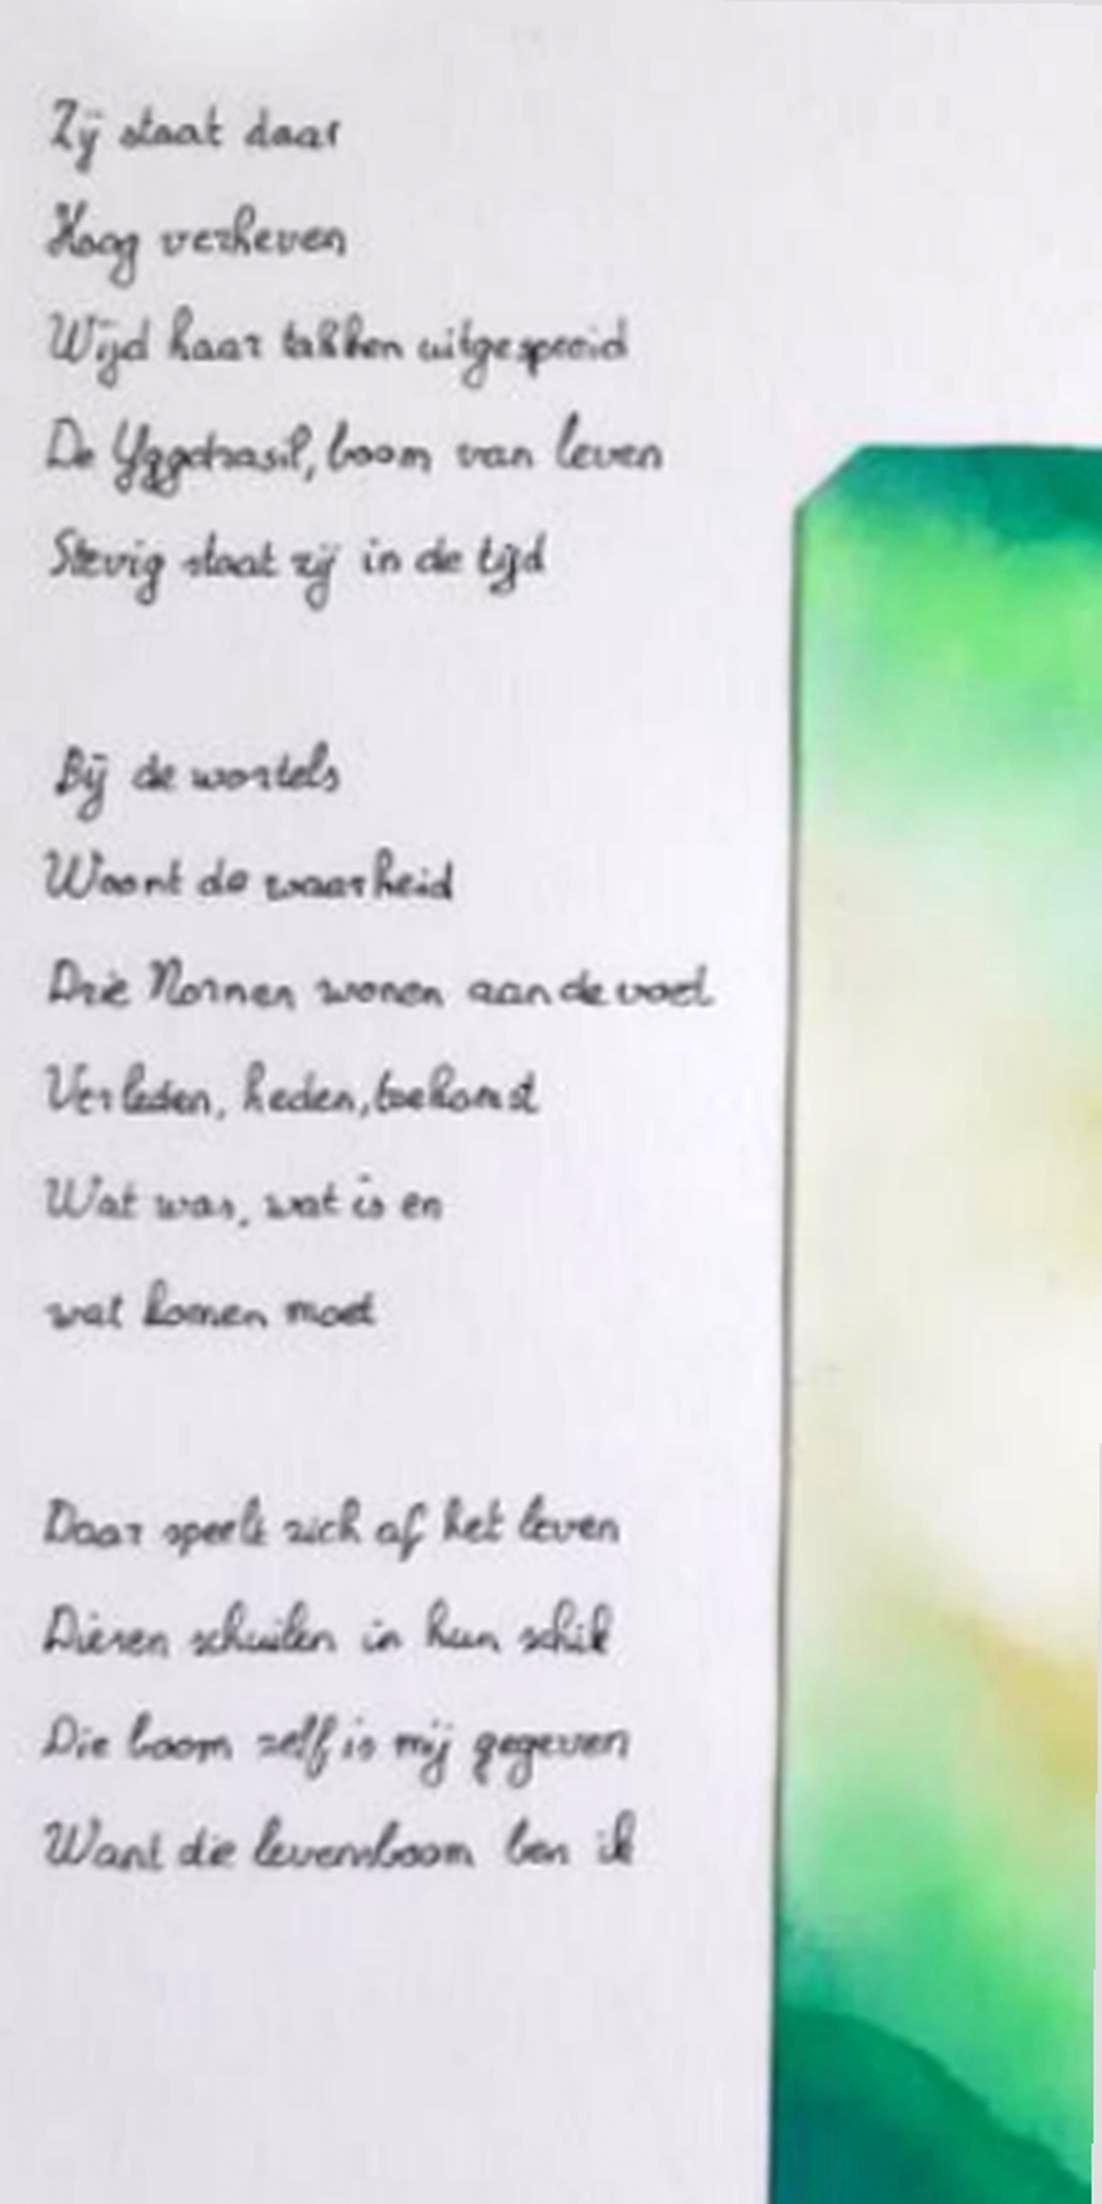 Zij staat daar
Hoog verheven
Wijd haar takken uitgespreid
De Yggdrasil, boom van leven
Stevig staat zij in de tijd
Bij de wortels
Woont de waarheid
Drie Nornen wonen aan de voet
Verleden, heden, toekomst
Wat was, wat is en
wat komen moet
Daar speelt zich af het leven
Dieren schuilen in hun schik
Die boom zelf is mij gegeven
Want die levensboom ben ik